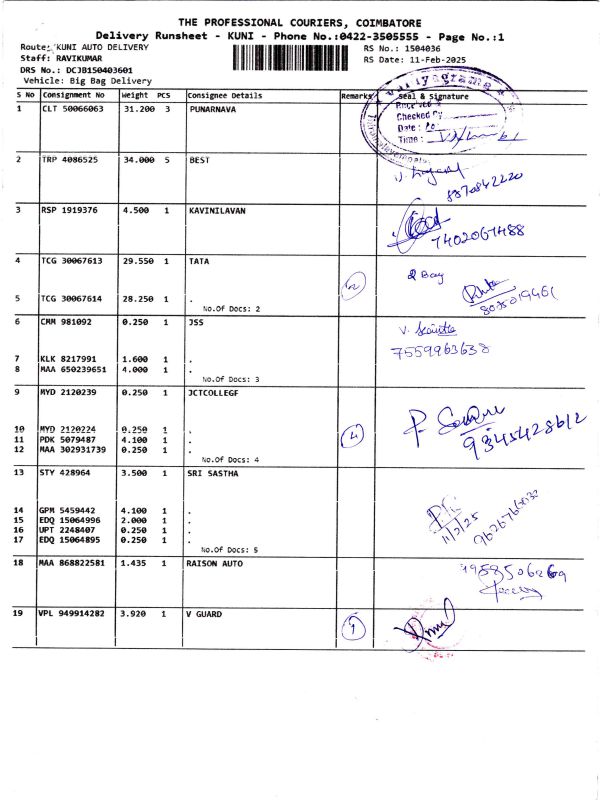 THE PROFESSIONAL COURIERS, COIMBATORE
Delivery Runsheet - KUNI - Phone No.:0422-3505555 - Page No.:1
Route: KUNI AUTO DELIVERY RS No.: 1504036
Staff: RAVIKUMAR RS Date: 11-Feb-2025
DRS No.: DCJB150403601
Vehicle: Big Bag Delivery
S No Consignment No Weight PCS Consignee Details Remarks Seal & Signature
1 CLT 50066063 31.200 3 PUNARNAVA
Received
Checked By
Date:
Time:
2 TRP 4086525 34.000 5 BEST
8870842220
3 RSP 1919376 4.500 1 KAVINILAVAN
7402067488
4 TCG 30067613 29.550 1 TATA
2 Bag
2
5 TCG 30067614 28.250 1 .
No.Of Docs: 2
6 CMM 981092 0.250 1 JSS
7559963638
7 KLK 8217991 1.600 1 .
8 MAA 650239651 4.000 1 .
No.Of Docs: 3
9 MYD 2120239 0.250 1 JCTCOLLEGF
10 MYD 2120224 0.250 1 .
11 PDK 5079487 4.100 1 .
12 MAA 302931739 0.250 1 .
4
9345428612
No.Of Docs: 4
13 STY 428964 3.500 1 SRI SASTHA
14 GPM 5459442 4.100 1 .
15 EDQ 15064996 2.000 1 .
16 UPT 2248407 0.250 1 .
17 EDQ 15064895 0.250 1 .
11/2/25
No.Of Docs: 5
18 MAA 868822581 1.435 1 RAISON AUTO
19 VPL 949914282 3.920 1 V GUARD
1